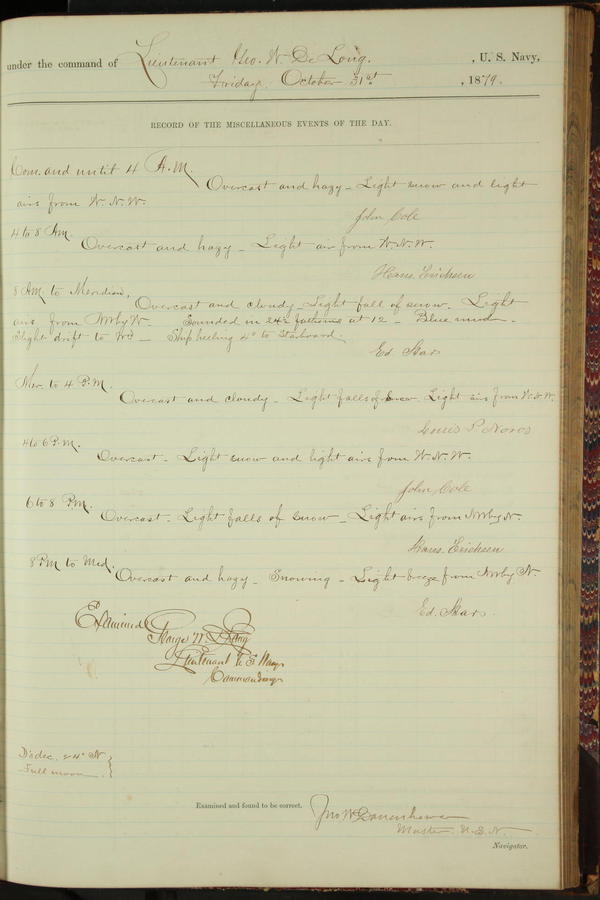 under the command of Lieutenant Geo. W. De Long. , U. S. Navy,
Friday, October 31st , 1879.
RECORD OF THE MISCELLANEOUS EVENTS OF THE DAY.
Com. and until 4 A.M.
Overcast and hazy - Light snow and light
airs from W. N. W.
John Cole
4 to 8 AM.
Overcast and hazy - Light air from W. N. W.
Hans. Erichsen
8 AM. to Meridian,
Overcast and cloudy - Light fall of snow. Light
airs from NW by W. Sounded in 24½ fathoms at 12 - Blue mud -
Slight drift to - Ship heeling 4° to Starboard.
Ed. Starr
Mer. to 4 P.M.
Overcast and cloudy - Light falls of snow. Light airs from W. N. W.
Louis P. Noros
4 to 6 P.M.
Overcast - Light snow and light airs from W. N. W.
John Cole
6 to 8 P.M.
Overcast - Light falls of snow - Light airs from NW by N.
Hans. Erichsen
8 PM to Med.
Overcast and hazy - Snowing - Light breeze from NW by N.
Ed. Starr.
Examined
George W. De Long
Lieutenant U S Navy
Commanding
D's dec. 24° N }
Full moon }
Examined and found to be correct. Jno W Danenhower
Master. U.S.N.
Navigator.